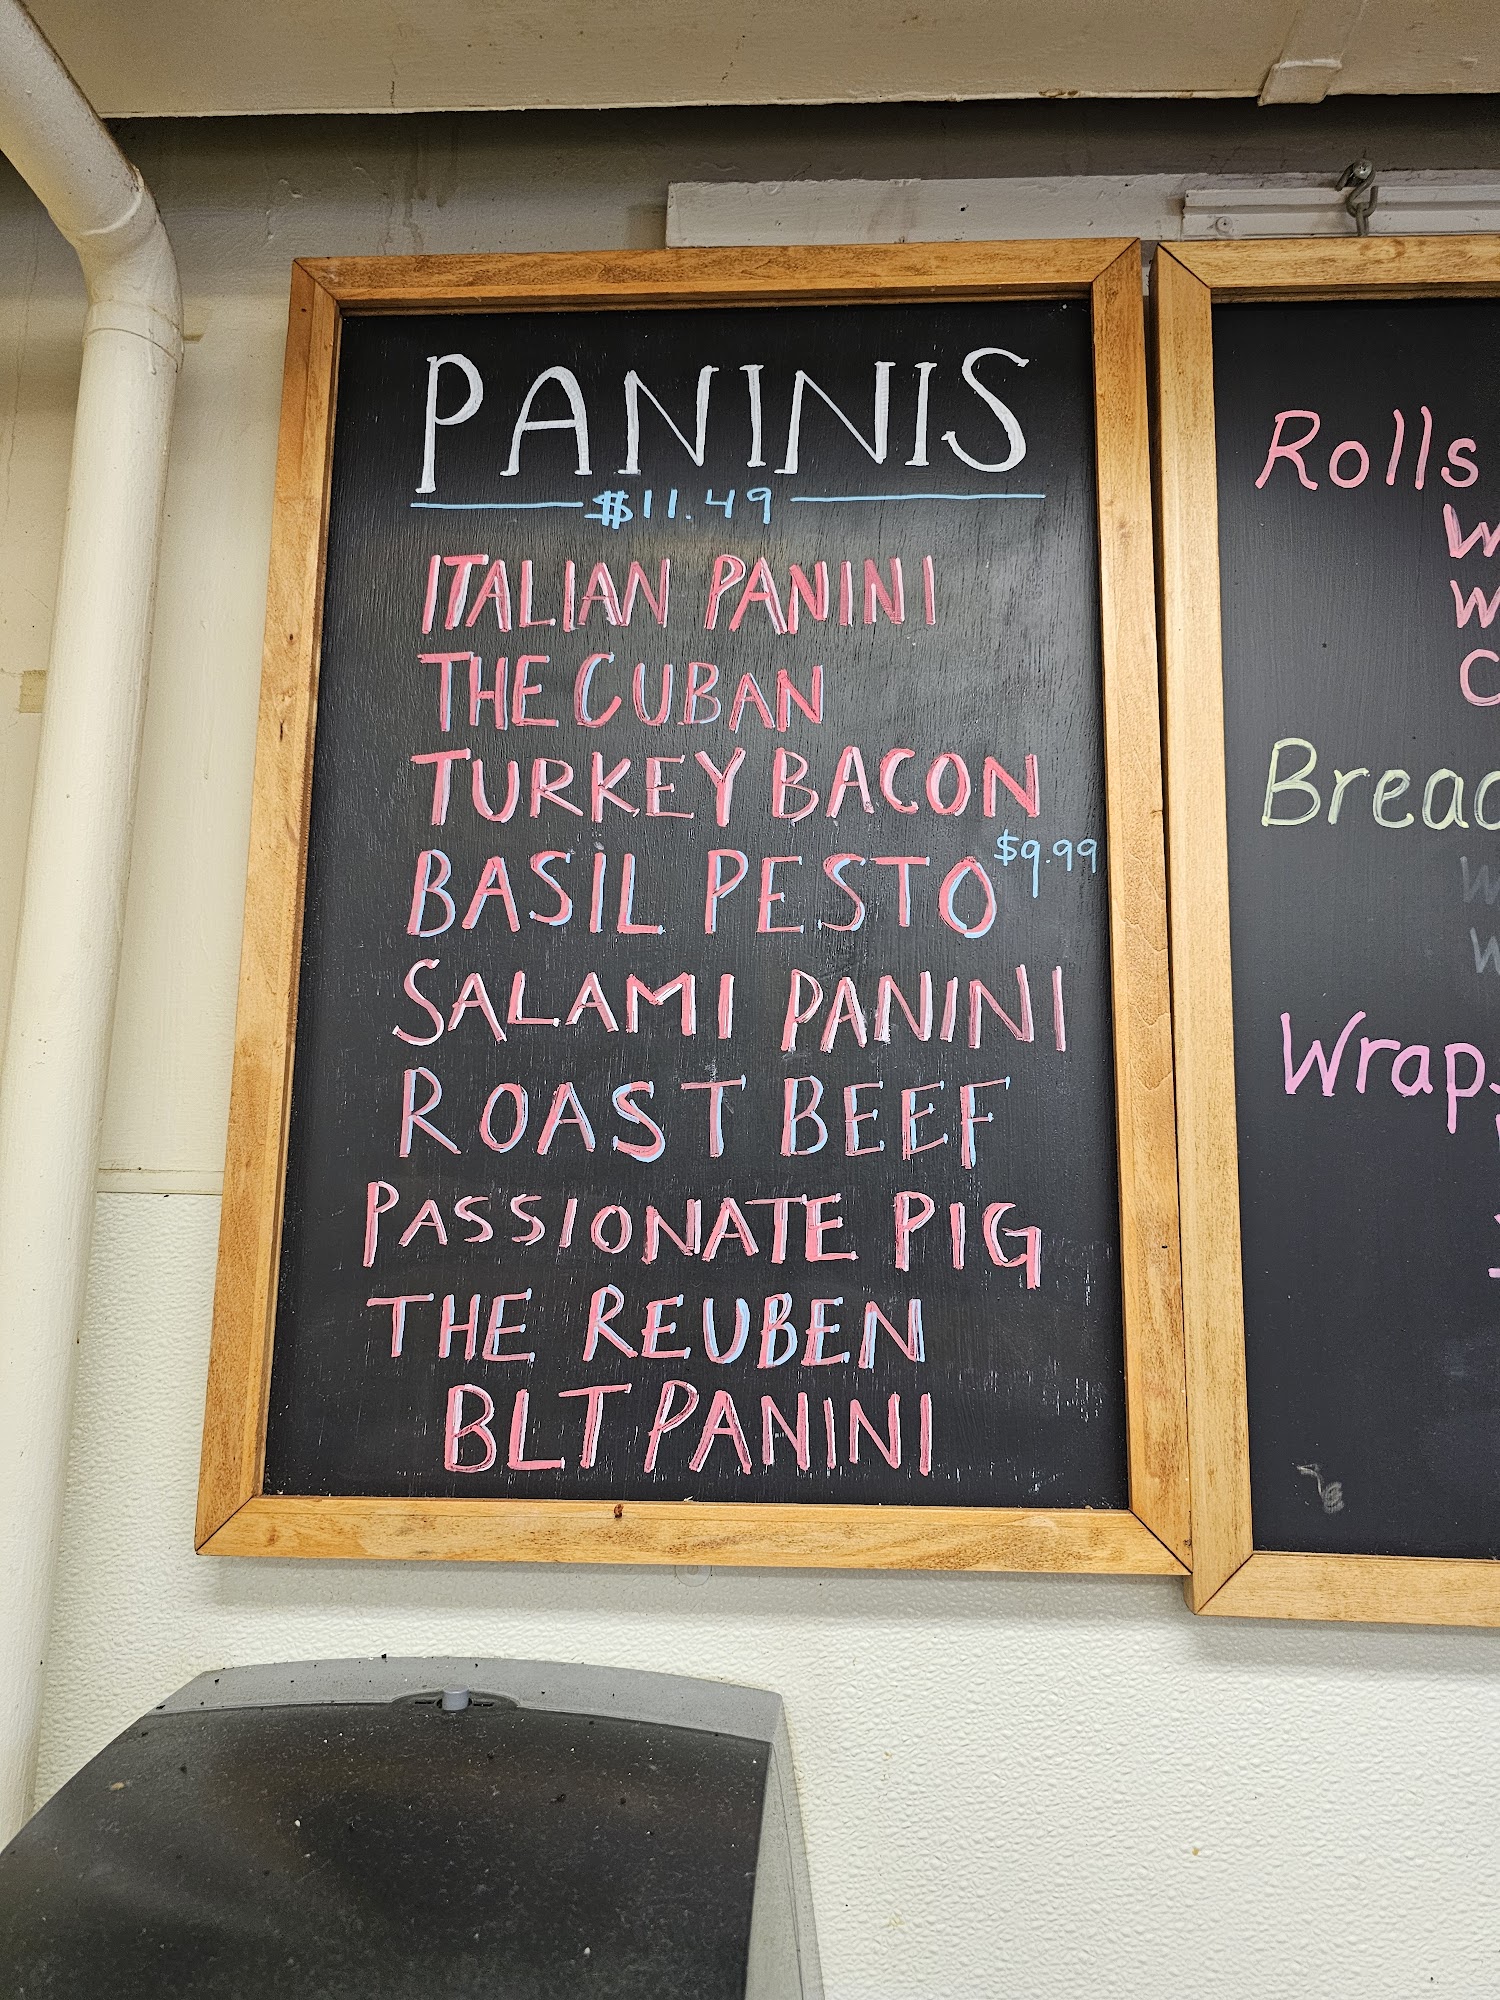 PANINIS
$11.49
ITALIAN PANINI
THE CUBAN
TURKEY BACON
BASIL PESTO $9.99
SALAMI PANINI
ROAST BEEF
PASSIONATE PIG
THE REUBEN
BLT PANINI
Rolls